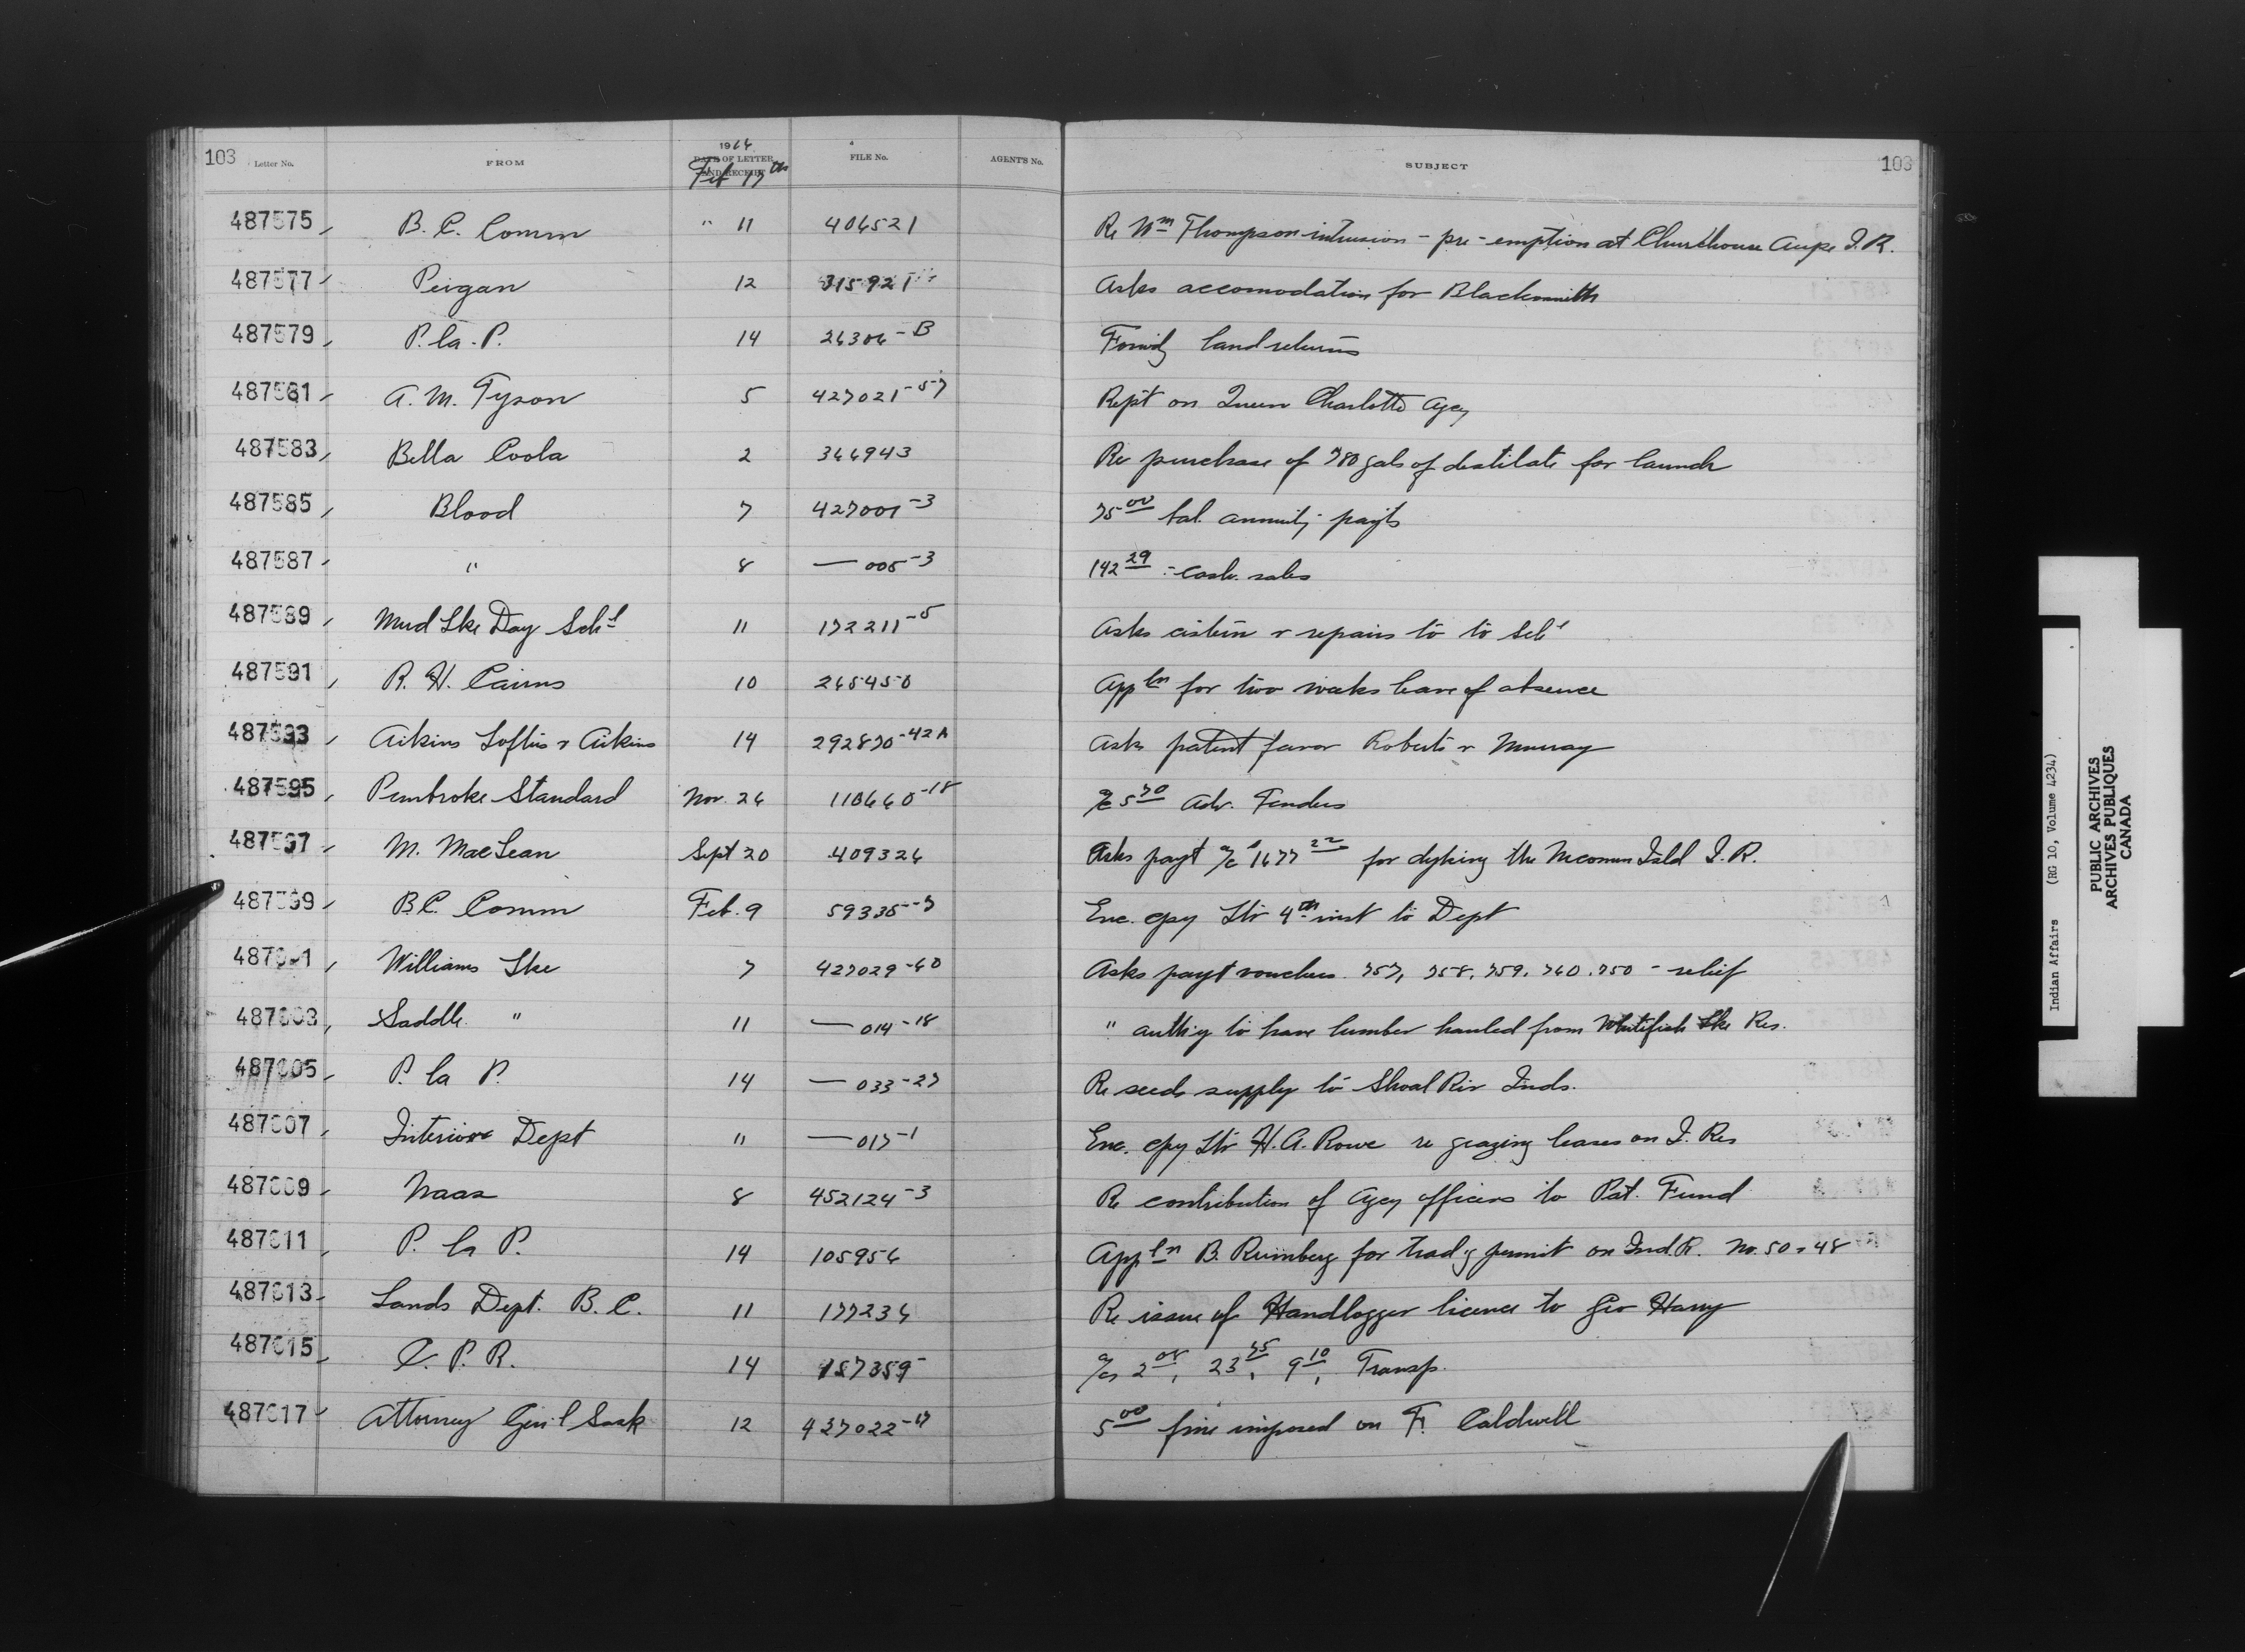 103 Letter No. FROM 1916 DATE OF LETTER AND RECEIPT Feb 17th FILE No. AGENT'S No. SUBJECT 103
487575 B. C. Comm " 11 406521 Re Wm Thompson intrusion - pre-emption at Churchouse Aupe I.R.
487577 Peigan 12 315921 Asks accomodation for Blacksmith
487579 P. la P. 14 26306-B Forwdg land returns
487581 A. M. Tyson 5 427021-57 Rept on Queen Charlotte Agcy
487583 Bella Coola 2 366943 Re purchase of 780 gals of distilate for launch
487585 Blood 7 427001-3 75 00 bal. annuity payts
487587 " 8 — 005-3 142 29 - cash sales
487589 Mud Lke Day Schl 11 172211-5 Asks cistern & repairs to to Schl
487591 R. H. Cairns 10 265450 Appln for two weeks leave of absence
487593 Aikins Loftus & Aikins 14 292870-42A Asks patent favor Roberts & Murray
487595 Pembroke Standard Nov. 26 110660-18 a/c 5 70 Adv. Tenders
487597 M. MacLean Sept 20 409326 Asks payt a/c $1677 22 for dyking the Nicomen Isld I.R.
487599 B.C. Comm Feb. 9 59335-7 Enc. cpy Ltr 4th inst to Dept
487601 Williams Lke 7 427029-60 Asks payt vouchers 757, 758, 759, 760, 750 - relief
487603 Saddle " 11 — 014-18 " authy to have lumber hauled from Whitefish Lke Res.
487605 P. la P. 14 — 033-27 Re seeds supply to Shoal Riv Inds.
487607 Interior Dept " — 017-1 Enc. cpy Ltr H. A. Rowe re grazing leases on I. Res
487609 Naas 8 452124-3 Re contribution of Agcy officers to Pat. Fund
487611 P. la P. 14 105956 Appln B. Rumberg for tradg permit on Ind. R. No. 50 & 48
487613 Lands Dept. B. C. 11 177236 Re issue of Handlogger licence to Geo Harry
487615 C. P. R. 14 157359- a/cs 2 08, 23 75, 9 10, Transp.
487617 Attorney Gen'l Sask 12 427022-17 5 00 fine imposed on F. Caldwell
Indian Affairs (RG 10, Volume 4234)
PUBLIC ARCHIVES
ARCHIVES PUBLIQUES
CANADA